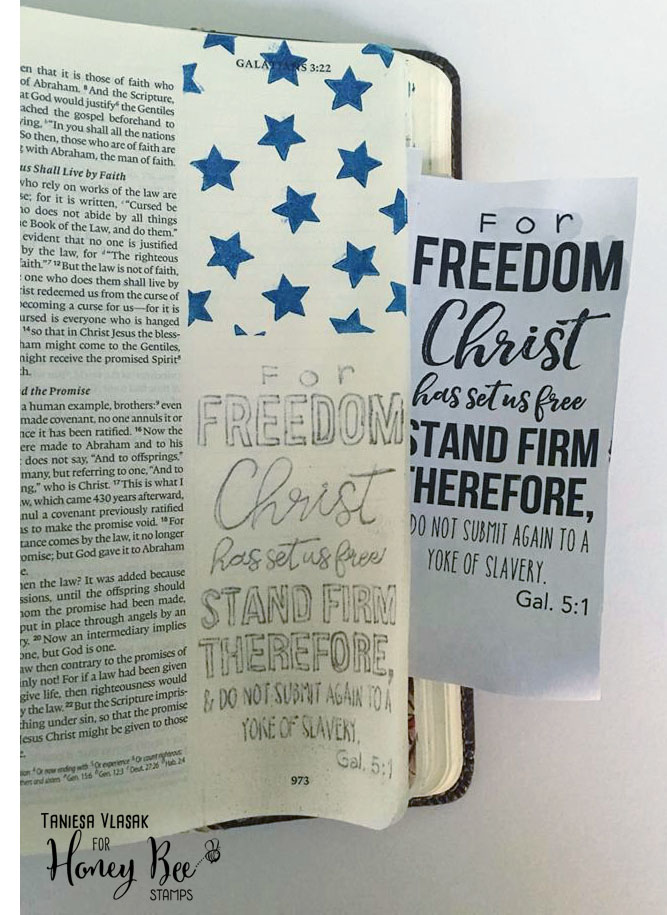 GALATIANS 3:22
en that it is those of faith who
of Abraham. 8 And the Scripture,
at God would justify the Gentiles
ached the gospel beforehand to
ying, "In you shall all the nations
So then, those who are of faith are
g with Abraham, the man of faith.
us Shall Live by Faith
who rely on works of the law are
se; for it is written, "Cursed be
ho does not abide by all things
e Book of the Law, and do them."
evident that no one is justified
by the law, for "The righteous
faith." 12 But the law is not of faith,
one who does them shall live by
rist redeemed us from the curse of
becoming a curse for us—for it is
ursed is everyone who is hanged
14 so that in Christ Jesus the bless-
ham might come to the Gentiles,
might receive the promised Spirit
h.
d the Promise
a human example, brothers: even
made covenant, no one annuls it or
nce it has been ratified. 16 Now the
ere made to Abraham and to his
does not say, "And to offsprings,"
many, but referring to one, "And to
ng," who is Christ. 17 This is what I
w, which came 430 years afterward,
nul a covenant previously ratified
s to make the promise void. 18 For
tance comes by the law, it no longer
omise; but God gave it to Abraham
e.
en the law? It was added because
ssions, until the offspring should
om the promise had been made,
put in place through angels by an
y. 20 Now an intermediary implies
one, but God is one.
aw then contrary to the promises of
nly not! For if a law had been given
give life, then righteousness would
y the law. 22 But the Scripture impris-
hing under sin, so that the promise
Jesus Christ might be given to those
For
FREEDOM
Christ
has set us free
STAND FIRM
THEREFORE,
& DO NOT SUBMIT AGAIN TO A
YOKE OF SLAVERY.
Gal. 5:1
973
For
FREEDOM
Christ
has set us free
STAND FIRM
THEREFORE,
DO NOT SUBMIT AGAIN TO A
YOKE OF SLAVERY.
Gal. 5:1
TANIESA VLASAK
FOR
Honey Bee
STAMPS